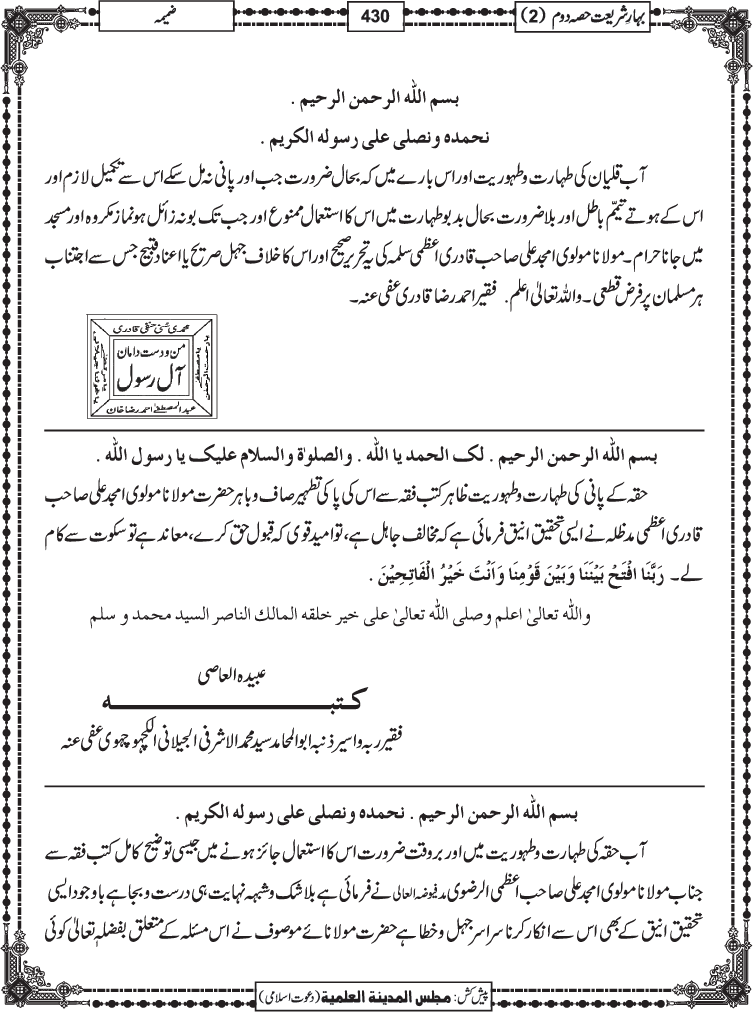 بہارِ شریعت حصہ دوم (2)
430
ضمیمہ
بسم اللّٰہ الرحمن الرحیم .
نحمدہ ونصلی علی رسولہ الکریم .
آب قلیان کی طہارت وطہوریت اور اس بارے میں کہ بحال ضرورت جب اور پانی نہ مل سکے اس سے تکمیل لازم اور
اس کے ہوتے تیمّم باطل اور بلا ضرورت بحال بدبو طہارت میں اس کا استعمال ممنوع اور جب تک بو نہ زائل ہو نماز مکروہ اور مسجد
میں جانا حرام ۔ مولانا مولوی امجد علی صاحب قادری اعظمی سلمہ کی یہ تحریر صحیح اور اس کا خلاف جہل صریح یا عناد قبیح جس سے اجتناب
ہر مسلمان پر فرض قطعی ۔ واللہ تعالیٰ اعلم . فقیر احمد رضا قادری عفی عنہ ۔
محمدی سنی حنفی قادری
من و دست دامان
آل رسول
عبد المصطفٰے احمد رضا خان
بسم اللّٰہ الرحمن الرحیم . لک الحمد یا اللّٰہ . والصلوۃ والسلام علیک یا رسول اللّٰہ .
حقہ کے پانی کی طہارت وطہوریت ظاہر کتب فقہ سے اس کی پاکی تطہیر صاف وباہر حضرت مولانا مولوی امجد علی صاحب
قادری اعظمی مدظلہ نے ایسی تحقیق انیق فرمائی ہے کہ مخالف جاہل ہے، تو امید قوی کہ قبول حق کرے، معاند ہے تو سکوت سے کام
لے ۔ رَبَّنَا افْتَحْ بَیْنَنَا وَبَیْنَ قَوْمِنَا وَاَنْتَ خَیْرُ الْفَاتِحِیْنَ .
واللّٰہ تعالیٰ اعلم وصلی اللّٰہ تعالیٰ علی خیر خلقہ المالك الناصر السید محمد و سلم
عبیدہ العاصی
کتبـــــــــــہ
فقیر ربہ واسیر ذنبہ ابو المحامد سید محمد الاشرفی الجیلانی الکچھوچھوی عفی عنہ
بسم اللّٰہ الرحمن الرحیم . نحمدہ ونصلی علی رسولہ الکریم .
آب حقہ کی طہارت وطہوریت میں اور بروقت ضرورت اس کا استعمال جائز ہونے میں جیسی توضیح کامل کتب فقہ سے
جناب مولانا مولوی امجد علی صاحب اعظمی الرضوی مدفیوضہ العالی نے فرمائی ہے بلا شک وشبہہ نہایت ہی درست وبجا ہے باوجود ایسی
تحقیق انیق کے بھی اس سے انکار کرنا سراسر جہل وخطا ہے حضرت مولانائے موصوف نے اس مسئلہ کے متعلق بفضلہٖ تعالیٰ کوئی
پیش کش: مجلس المدینة العلمیة (دعوت اسلامی)